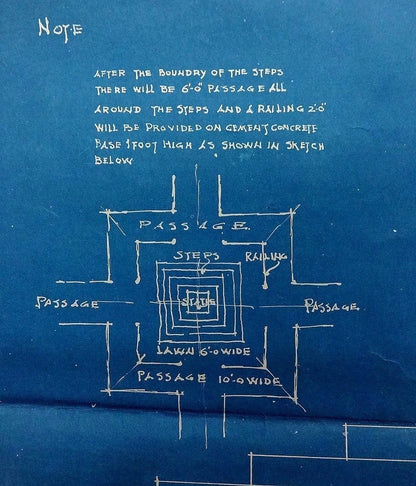 NOTE
AFTER THE BOUNDRY OF THE STEPS
THERE WILL BE 6'-0" PASSAGE ALL
AROUND THE STEPS AND A RAILING 2'0"
WILL BE PROVIDED ON CEMENT CONCRETE
BASE 1 FOOT HIGH AS SHOWN IN SKETCH
BELOW
PASSAGE.
STEPS RAILING
PASSAGE STATUE PASSAGE.
LAWN 6'-0 WIDE
PASSAGE 10'-0 WIDE